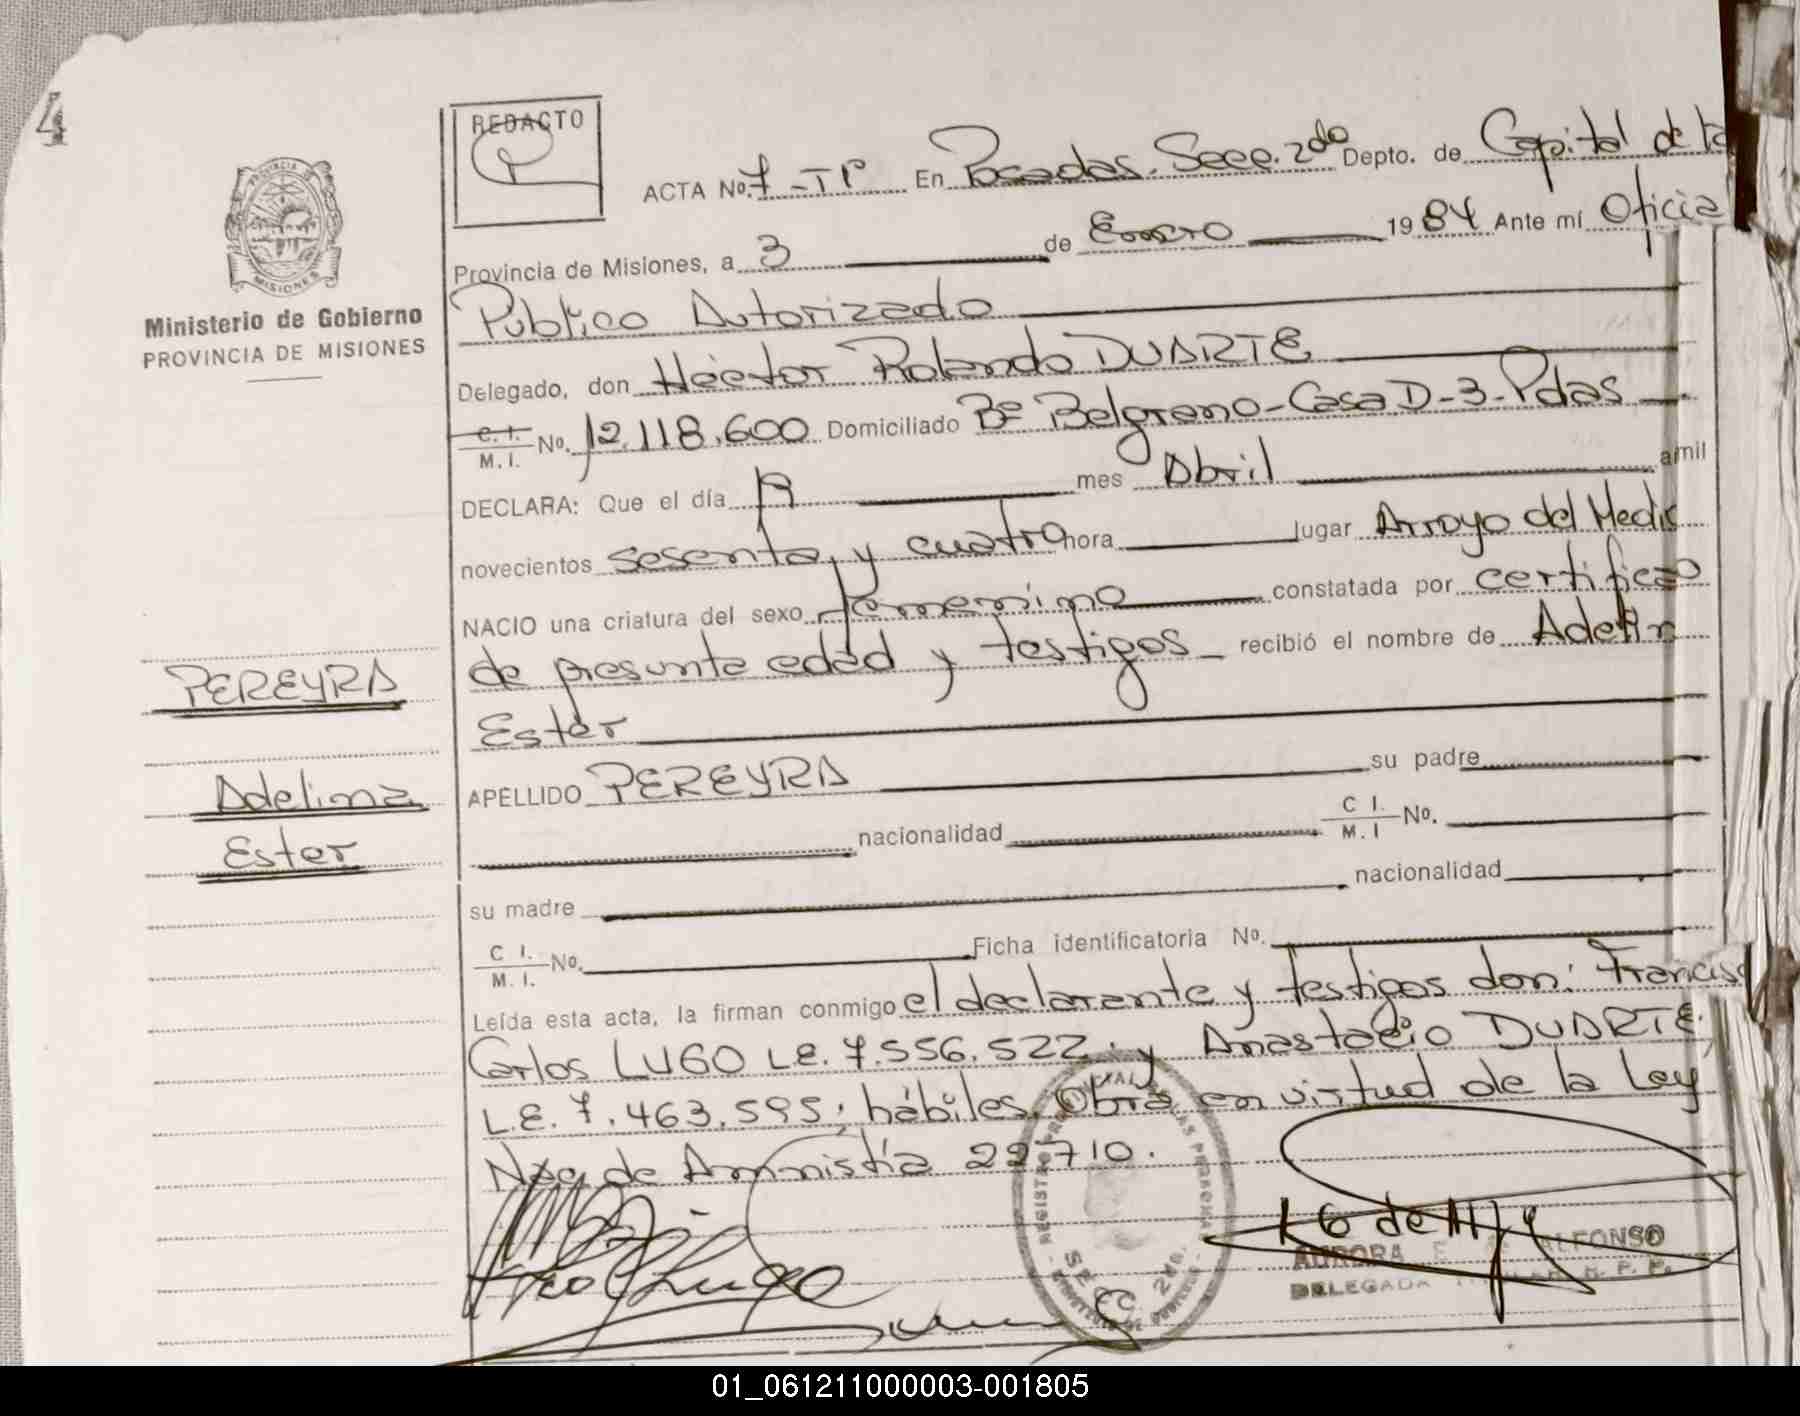 4
REDACTO
ACTA No. 7 - TP En Posadas. Secc. 2da Depto. de Capital de la
Provincia de Misiones, a 3 de Enero 1984 Ante mí Oficia
Público Autorizado
Delegado, don Héctor Rolando DUARTE
C. I. / M. I. No. 12.118.600 Domiciliado Bº Belgrano - Casa D-3 - Pdas
DECLARA: Que el día mes Abril a mil
novecientos sesenta y cuatro hora lugar Arroyo del Medio
NACIO una criatura del sexo femenino constatada por certificado
de presunta edad y testigos recibió el nombre de Adelin
Ester
APELLIDO PEREYRA su padre
nacionalidad C I. / M. I No.
su madre nacionalidad
C I. / M. I. No. Ficha identificatoria No.
Leída esta acta, la firman conmigo el declarante y testigos don: Francisco
Carlos LUGO L.E. 7.556.522. y Anastacio DUARTE,
L.E. 7.463.595; hábiles. Obra en virtud de la Ley
Nac. de Amnistía 22710.
PROVINCIA D
MISIONES
Ministerio de Gobierno
PROVINCIA DE MISIONES
PEREYRA
Adelina
Ester
Lugo
REGISTRO PROVINCIAL DE LAS PERSONAS
SECC. 2da.
AURORA ALFONSO
DELEGADA TITULAR R. P. P.
01_061211000003-001805